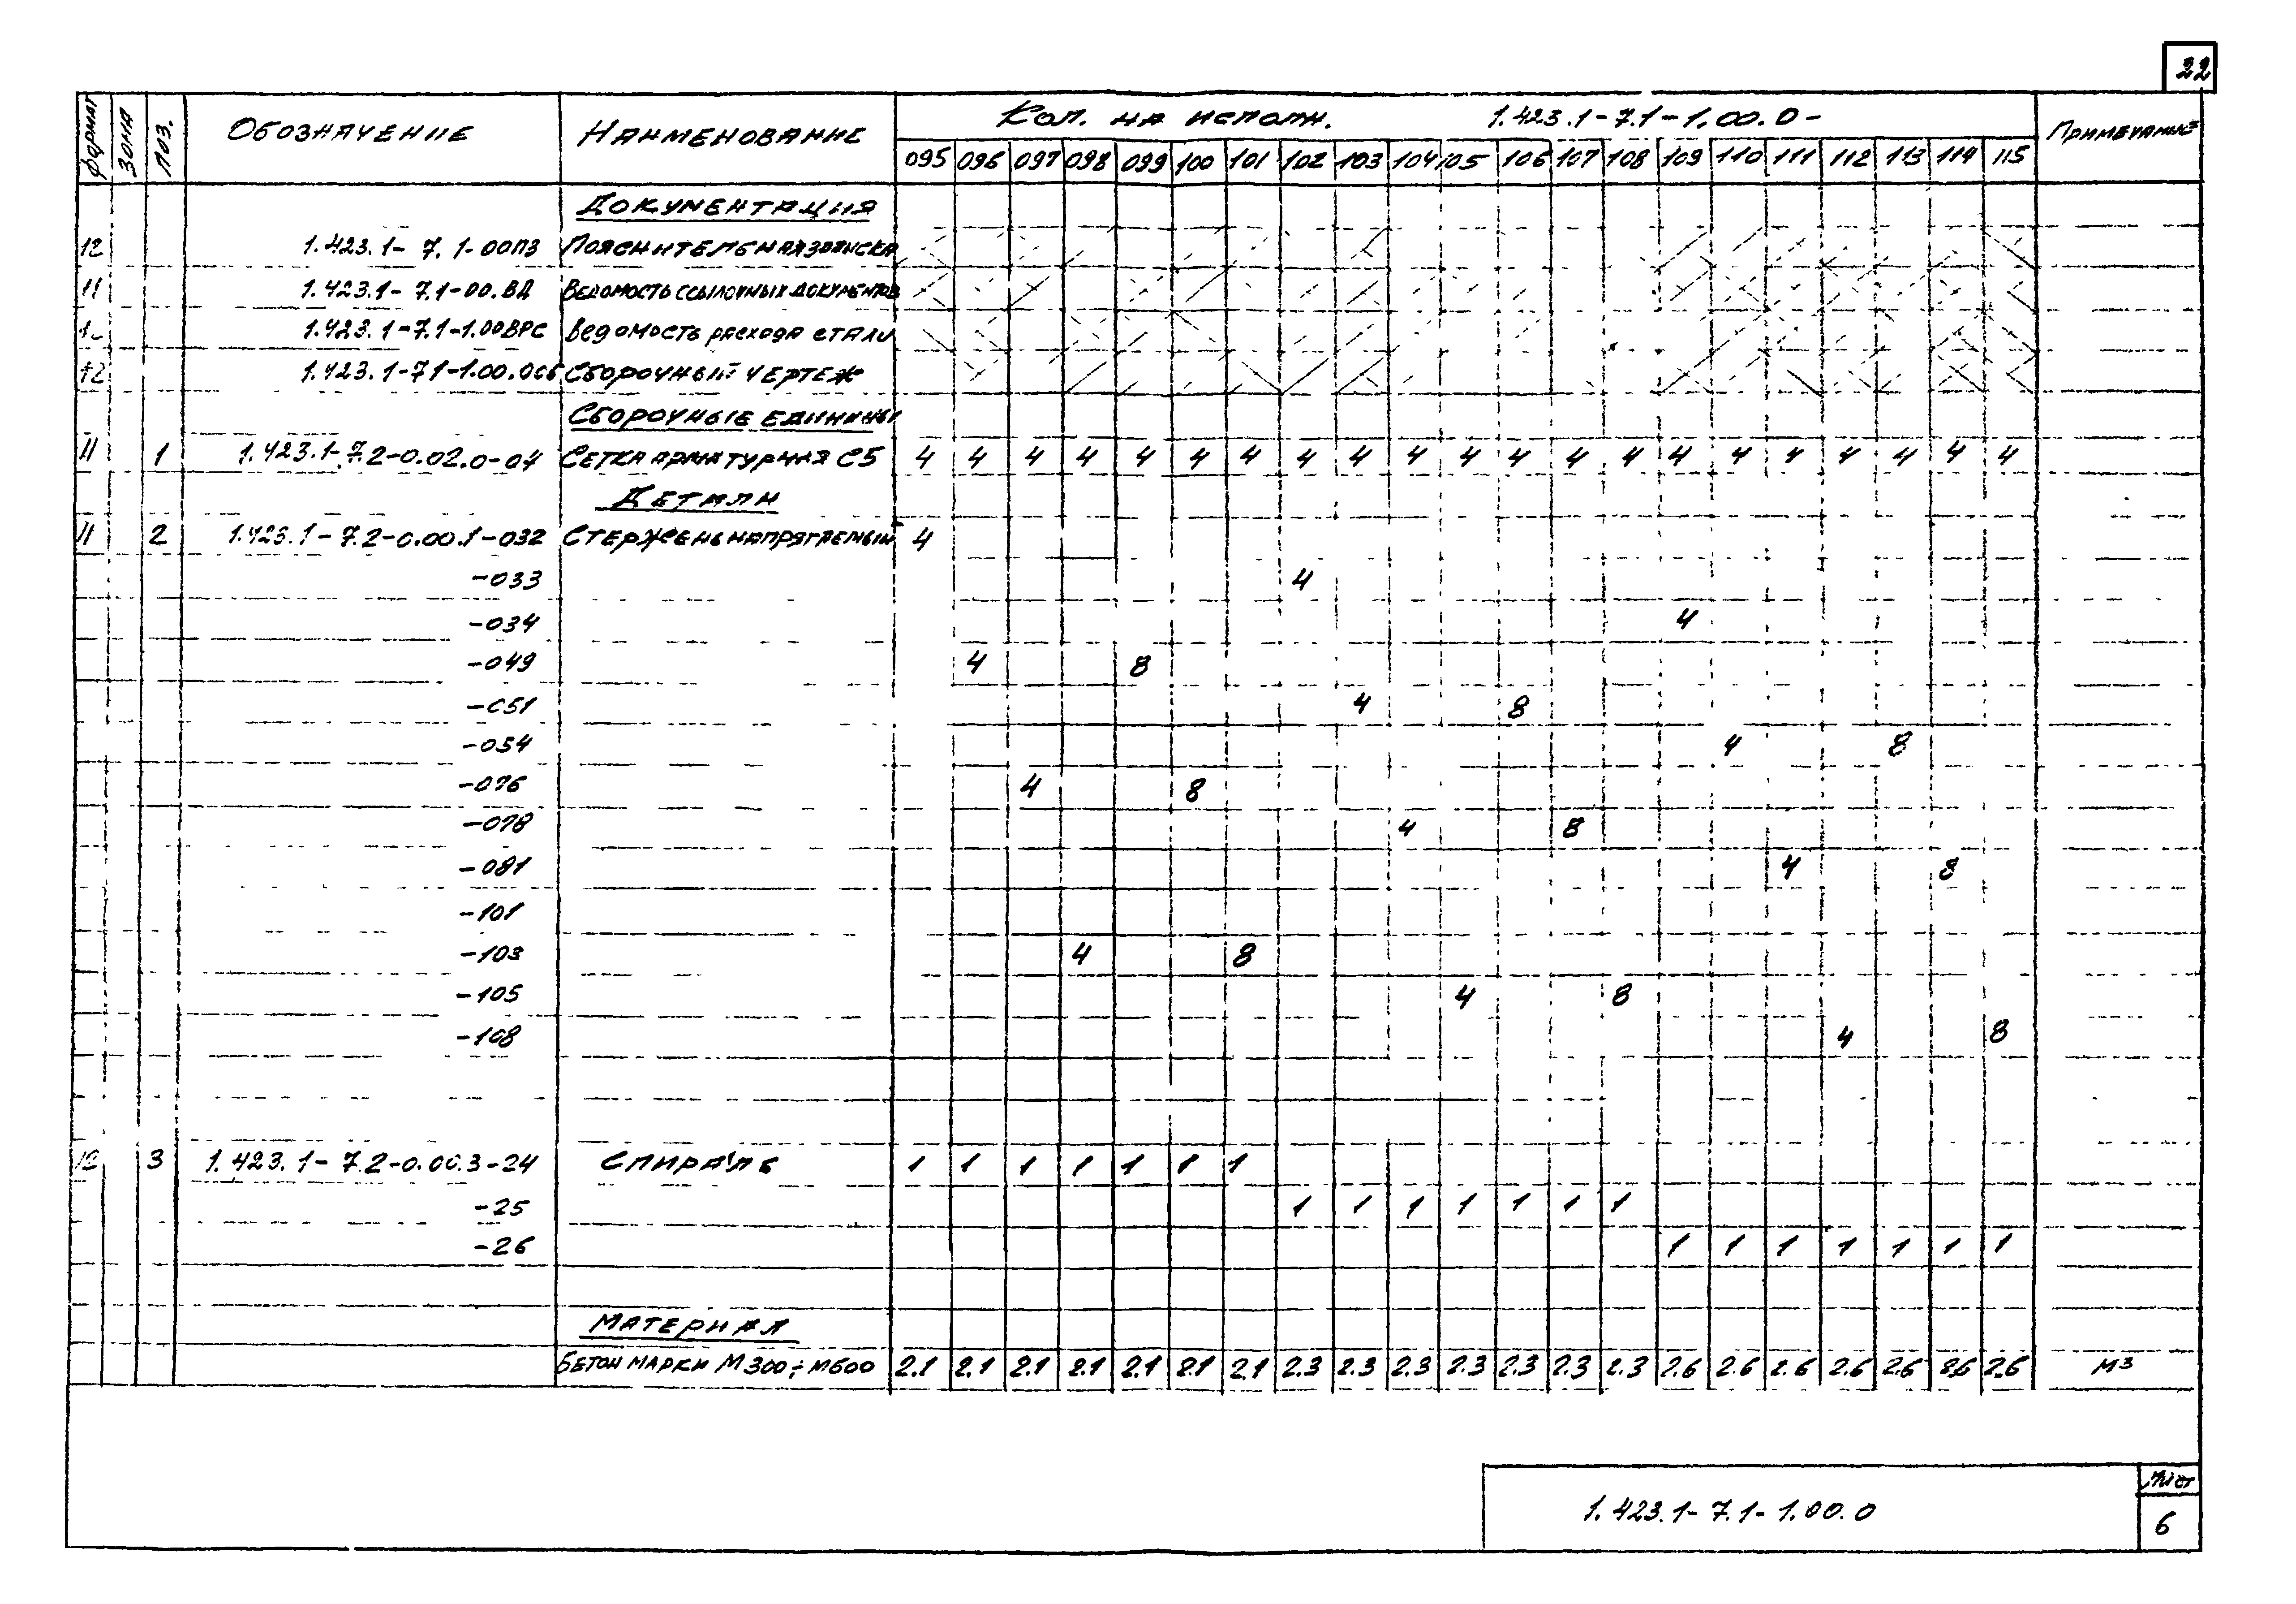 22
Формат Зона Поз. Обозначение Наименование Кол. на исполн. 1.423.1-7.1-1.00.0- Примечание
095 096 097 098 099 100 101 102 103 104 105 106 107 108 109 110 111 112 113 114 115
Документация
12 1.423.1-7.1-00ПЗ Пояснительная записка
11 1.423.1-7.1-00.ВД Ведомость ссылочных документов
1.423.1-7.1-1.00ВРС Ведомость расхода стали
12 1.423.1-7.1-1.00.0СБ Сборочный чертеж
Сборочные единицы
11 1 1.423.1-7.2-0.02.0-04 Сетка арматурная С5 4 4 4 4 4 4 4 4 4 4 4 4 4 4 4 4 4 4 4 4 4
Детали
11 2 1.423.1-7.2-0.00.1-032 Стержень напрягаемый 4
-033 4
-034 4
-049 4 8
-051 4 8
-054 4 8
-076 4 8
-078 4 8
-081 4 8
-101
-103 4 8
-105 4 8
-108 4 8
3 1.423.1-7.2-0.00.3-24 Спираль 1 1 1 1 1 1 1
-25 1 1 1 1 1 1 1
-26 1 1 1 1 1 1 1
Материал
Бетон марки М300÷М600 2.1 2.1 2.1 2.1 2.1 2.1 2.1 2.3 2.3 2.3 2.3 2.3 2.3 2.3 2.6 2.6 2.6 2.6 2.6 2.6 2.6 м³
1.423.1-7.1-1.00.0 Лист
6